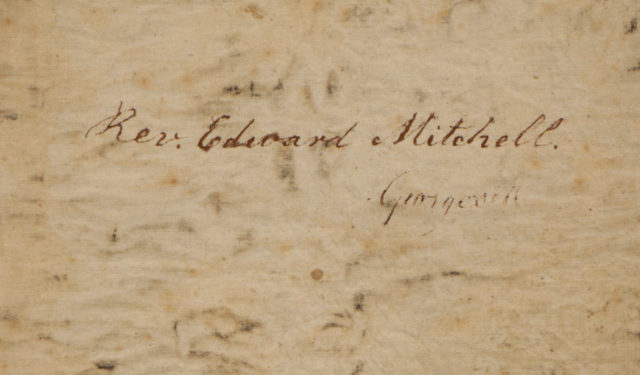 Rev. Edward Mitchell.
Georgevill